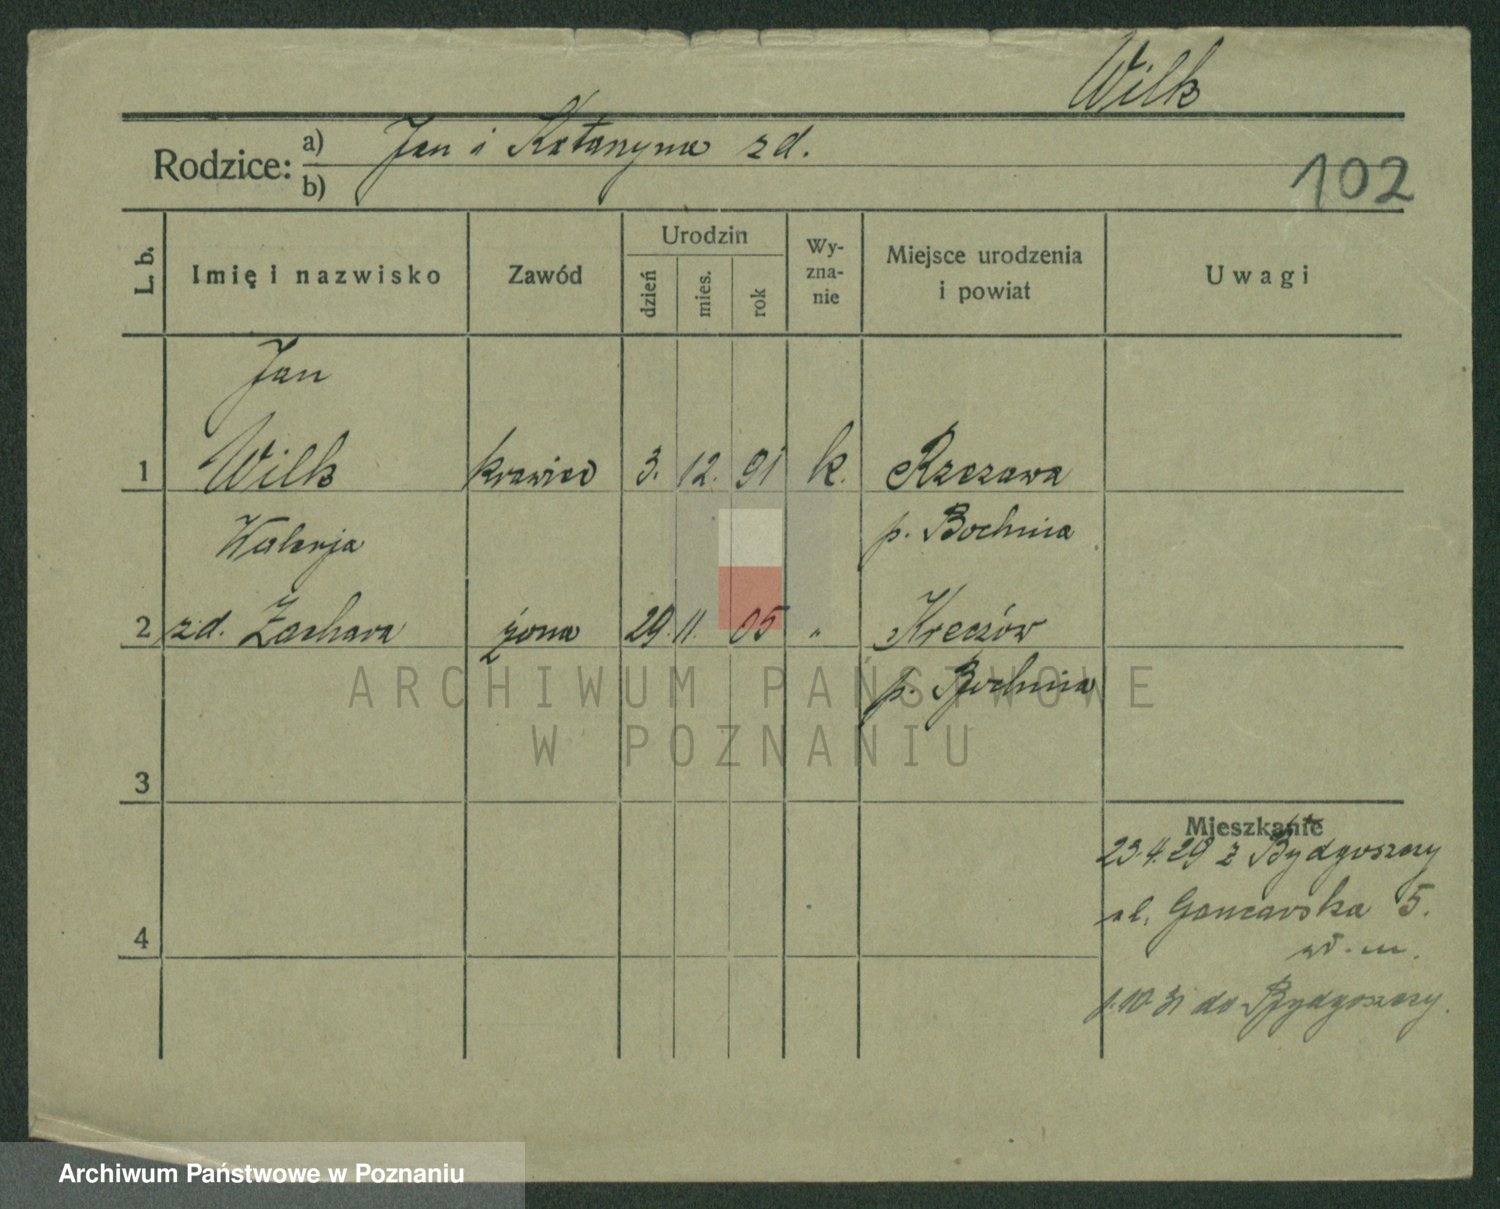 Wilk
Rodzice: a) Jan i Katarzyna zd.
b)
102
L. b. Imię i nazwisko Zawód Urodzin dzień mies. rok Wy-zna-nie Miejsce urodzenia i powiat Uwagi
Jan
1 Wilk krawiec 3. 12. 91 k. Rzezawa
Walerja p. Bochnia
2 zd. Zachara żona 29. 11. 05 " Kreczów
p. Bochnia
3
Mieszkanie
23.4.29 z Bydgoszczy
4 ul. Garncarska 5.
w. m.
1.10.31 do Bydgoszczy.
ARCHIWUM PAŃSTWOWE
W POZNANIU
Archiwum Państwowe w Poznaniu